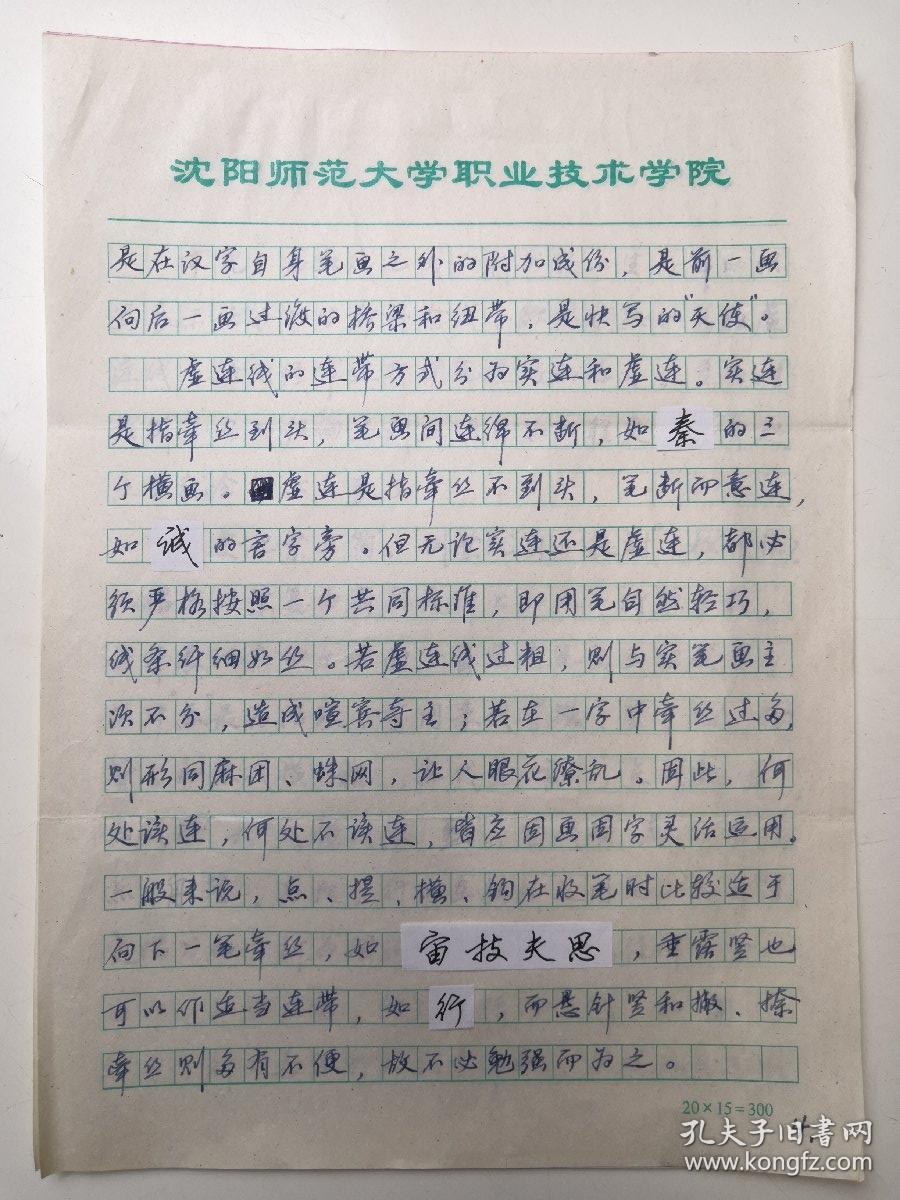 沈阳师范大学职业技术学院
是在汉字自身笔画之外的附加成份，是前一画
向后一画过渡的桥梁和纽带，是快写的"天使"。
虚连线的连带方式分为实连和虚连。实连
是指牵丝到头，笔画间连绵不断，如秦的三
个横画。虚连是指牵丝不到头，笔断而意连，
如诚的言字旁。但无论实连还是虚连，都必
须严格按照一个共同标准，即用笔自然轻巧，
线条纤细如丝。若虚连线过粗，则与实笔画主
次不分，造成喧宾夺主；若在一字中牵丝过多，
则形同麻团、蛛网，让人眼花缭乱。因此，何
处该连，何处不该连，皆应因画因字灵活运用。
一般来说，点、提、横、钩在收笔时比较适于
向下一笔牵丝，如宙技夫思，垂露竖也
可以作适当连带，如行，而悬针竖和撇、捺
牵丝则多有不便，故不必勉强而为之。
20×15=300
孔夫子旧书网
www.kongfz.com